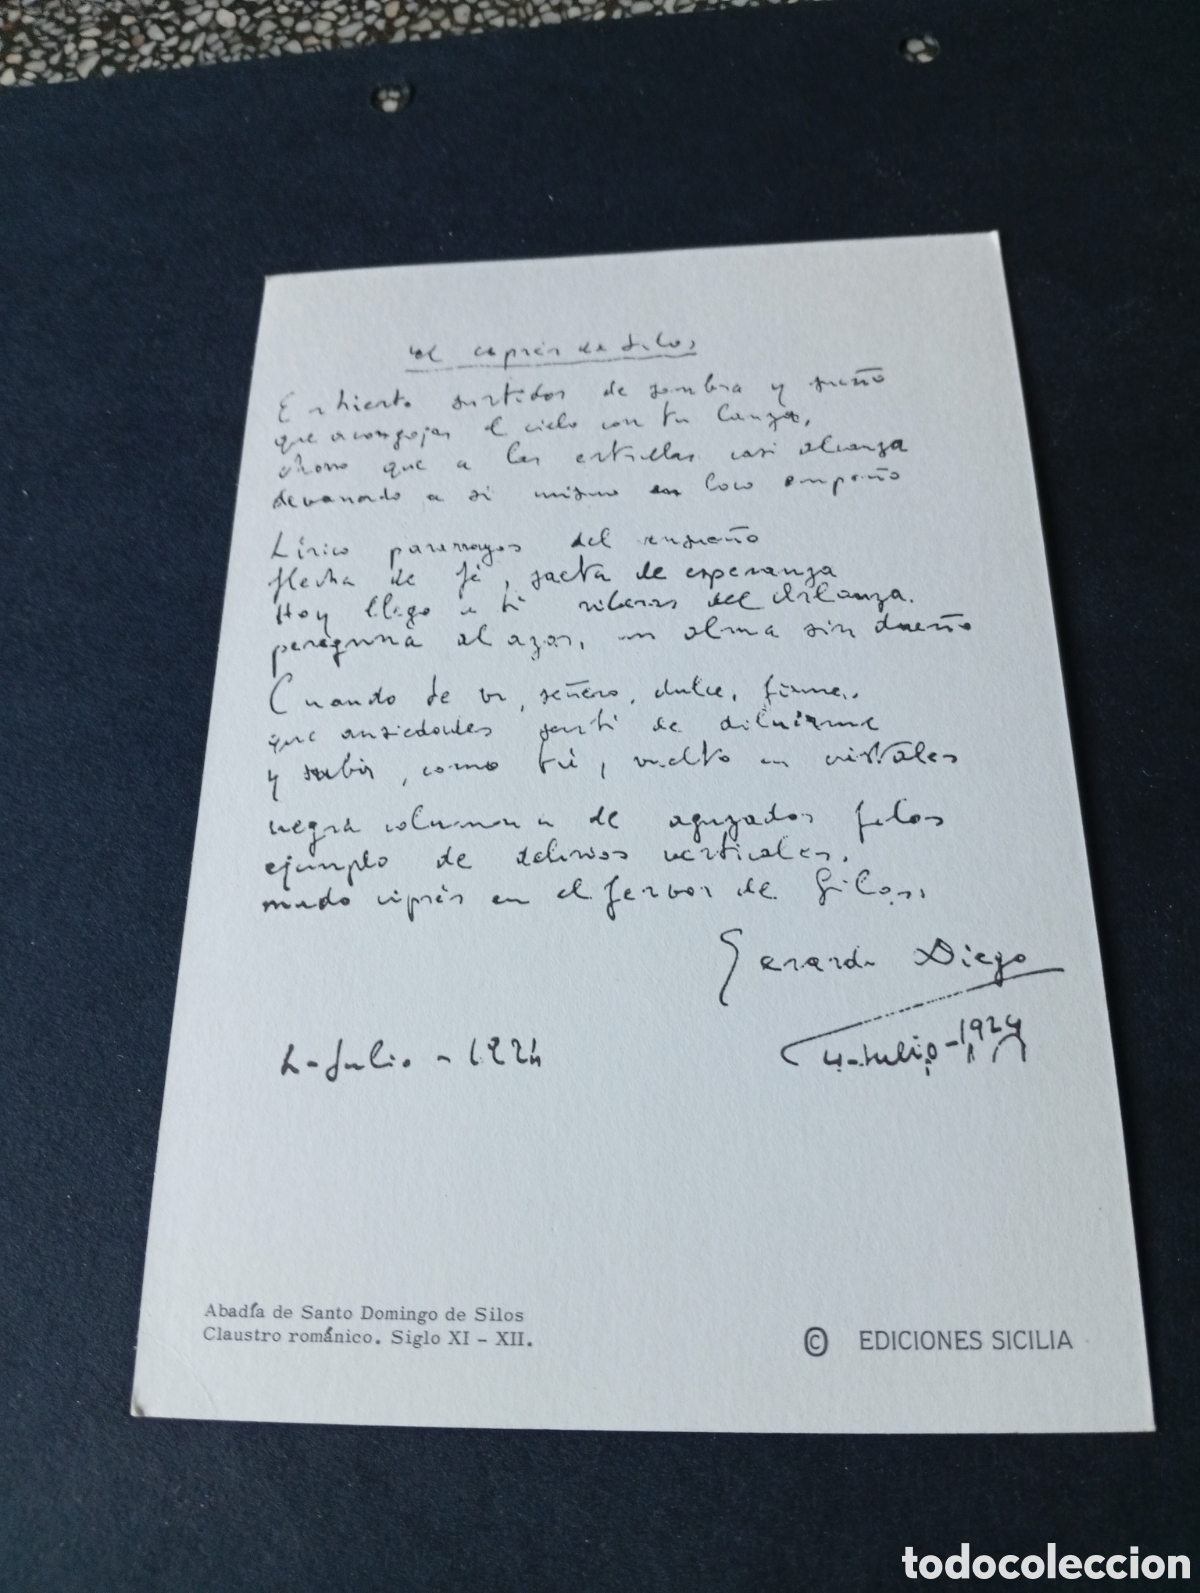 el ciprés de Silos
Enhiesto surtidor de sombra y sueño
que acongojas el cielo con tu lanza,
chorro que a las estrellas casi alcanza
devanado a si mismo en loco empeño
Lírico pararrayos del ensueño
flecha de fé, saeta de esperanza
Hoy llego a ti riberas del Arlanza.
peregrina al azar, mi alma sin dueño
Cuando te vi, señero, dulce, firme,
que ansiedades sentí de diluirme
y subir, como tú, vuelto en cristales
negra columna de aguzados filos
ejemplo de delirios verticales,
mudo ciprés en el fervor de Silos.
Gerardo Diego
4-Julio-1924
4-Julio-1924
Abadía de Santo Domingo de Silos
Claustro románico. Siglo XI - XII.
© EDICIONES SICILIA
todocoleccion